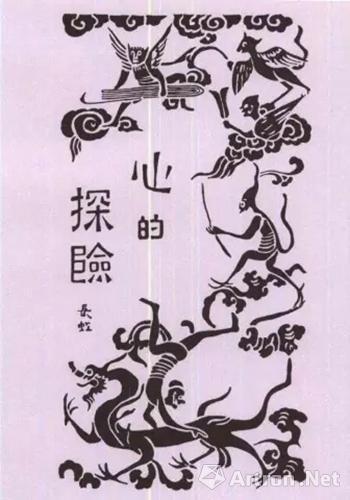 心的
探險
長虹
Artron.Net